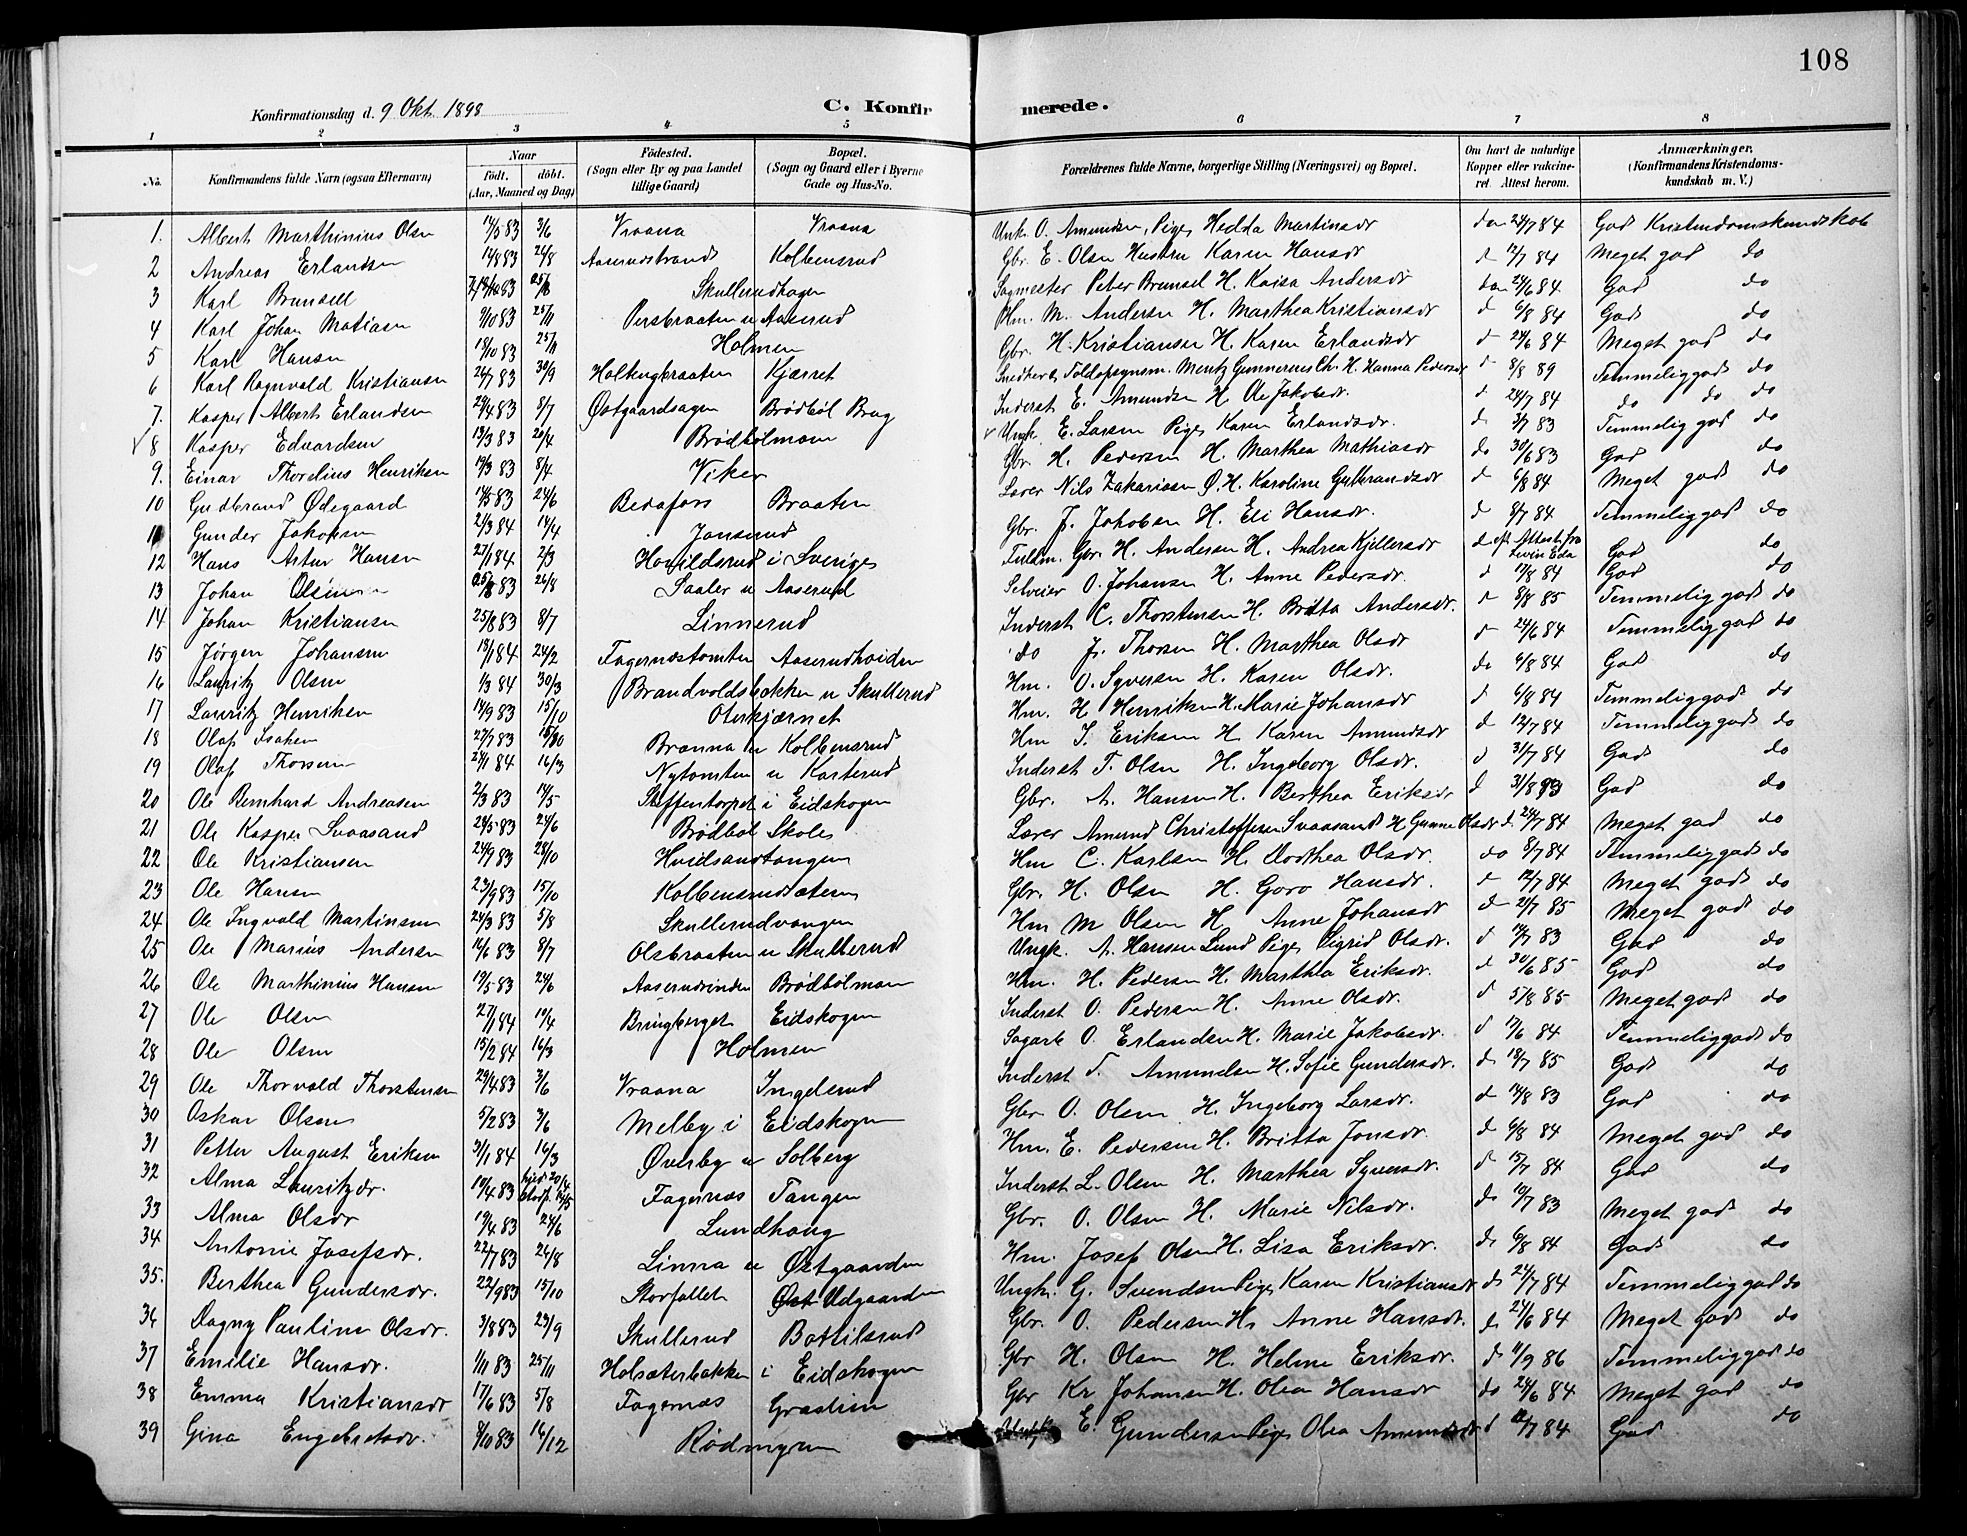 108
Konfirmationsdag d. 9 Okt. 1898
C. Konfirmerede.
1 2 3 4 5 6 7 8
No. Konfirmandens fulde Navn (ogsaa Efternavn) Naar født. døbt. (Aar, Maaned og Dag) Födested. (Sogn eller By og paa Landet tillige Gaard) Bopæl. (Sogn og Gaard eller i Byerne Gade og Hus-No. Forældrenes fulde Navne, borgerlige Stilling (Næringsvei) og Bopæl. Om havt de naturlige Kopper eller vakcineret. Attest herom. Anmærkninger. (Konfirmandens Kristendomskundskab m. V.)
1. Albert Marthinius Olsen 14/5 83 3/6 Vraana Vraana Unk. O. Amundsen, Pige Hedda Martinsdr do 24/7 84 God Kristendomskundskab
2 Andreas Erlandsen 14/8 83 26/8 Aaserudstrand Kolbensrud Gbr. E. Olsen Hustru Karen Hansdr d 12/7 84 Meget god do
3 Karl Brunsell Skullerudhagen Sagmester Peter Brunsel H. Kaisa Andersdr do 24/6 84 God do
4 Karl Johan Matiasen 9/10 83 25/11 Persbraaten u Aaserud Hm. M. Andersen H. Marthea Kristiansdr d 6/8 84 God do
5 Karl Hansen 18/10 83 25/11 Holmen Gbr. H. Kristiansen H. Karen Erlandsdr d 24/6 84 Meget god do
6 Karl Ragnvald Kristiansen 26/7 83 30/9 Kjærret Toldopsynsm. H. Hanna Pedersdr d 8/8 89 Temmelig god do
7. Kasper Albert Erlandsen 29/4 83 8/7 Østgaardsagen Brödböl Brug Inderst E. Amundsen H. Ole Jakobsdr. d 24/7 84 do do do
8 Kasper Eduardsen 13/3 83 20/4 Brödbölmoen Ungk. E. Larsen Pige Karen Erlandsdr. d 3/7 83 Temmelig god do
9. Einar Thorelius Henriksen 19/3 83 8/4 Viker Gbr. H. Pedersen H. Marthea Mathiasdr do 30/6 83 God do
10 Gudbrand Ødegaard 14/5 83 24/6 Bedafors Braaten Lærer Nils Zakariasen Ø. H. Karoline Gulbrandsdr d 6/8 84 Meget god do
11 Gunder Jakobsen 21/3 84 14/4 Jonsrud Gbr. J. Jakobsen H. Eli Hansdr. d 8/7 84 Temmelig god do
12 Hans Artur Hansen 27/1 84 2/3 Hovildsrud i Sverige Fuldm. Gbr. H. Andersen H. Andrea Kjellersdr d ef. Attest fra Eda God do
13 Johan Olsen 83 26/8 Saaler u Aaserud Selveier O. Johansen H. Anne Pedersdr. d 17/8 84 God do
14 Johan Kristiansen 25/8 83 8/7 Linnerud Inderst C. Thorstensen H. Britta Andersdr. d 8/8 85 Temmelig god do
15 Jörgen Johansen 18/1 84 24/2 Fagernæstomten Aaserudheiden do J. Thorsen H. Marthea Olsdr d 24/6 84 Temmelig god do
16 Lauritz Olsen 1/3 84 30/3 Brandvoldsbakken u Skullerud Hm. O. Syversen H. Karen Olsdr. do 6/8 84 God do
17 Lauritz Henriksen 14/9 83 15/10 Oterkjærnet Hm. H. Henriksen H. Marie Johansdr d 6/8 84 Temmelig god do
18 Olaf Isaksen 27/7 83 Branna u Kolbensrud Hm I. Eriksen H. Karen Amundsdr d 12/7 84 Temmelig god do
19 Olaf Thorsen 84 16/3 Nytomten u Kasterud Inderst T. Olsen H. Ingeborg Olsdr. d 31/7 84 God do
20 Ole Bernhard Andreasen 2/3 83 14/5 Steffentorpet i Eidskogen Gbr. A. Hansen H. Berthea Eriksdr d 31/8 93 God do
21 Ole Kasper Svaasand 24/5 83 24/6 Brödböl Skole Lærer Amund Christoffersen Svaasand H Gunne Olsdr d 84 Meget god do
22 Ole Kristiansen 24/9 83 28/10 Hvidsandtangen Hm C. Karlsen H. Dorthea Olsdr. do 8/7 84 Temmelig god do
23 Ole Hansen 23/9 83 15/10 Kolbensrudsæteren Gbr. H. Olsen H. Goro Hansdr. d 12/7 84 Meget god do
24 Ole Ingvald Martinsen 24/3 83 5/8 Skullerudvangen Hm M Olsen H. Anne Johansdr d 21/7 85 Meget god do
25 Ole Marius Andersen 14/6 83 8/7 Olsbraaten u Skullerud Ungk. A. Hansen Lund Pige Sigrid Olsdr. d 83 God do
26 Ole Marthinius Hansen 19/5 83 24/6 Brödbölmoen Hm. H. Pedersen H. Marthea Eriksdr. d 30/6 85 God do
27 Ole Olsen 27/1 84 14/4 Bringberget Eidskogen Inderst O. Pedersen H. Anne Olsdr. d 5/8 85 Meget god do
28 Ole Olsen 15/2 84 16/3 Holmen Sagarb O. Erlandsen H. Marie Jakobsdr. d 84 Temmelig god do
29 Ole Thorvald Thorstensen 29/4 83 3/6 Vraana Ingelsrud Inderst T. Amundsen H. Sofie Gundersdr. d 18/7 85 God do
30 Oskar Olsen 5/2 83 3/6 Melby i Eidskogen Gbr O. Olsen H. Ingeborg Larsdr. d 14/8 83 God do
31 Petter August Eriksen 31/1 84 16/3 Øverby u Solberg Hm. E. Pedersen H. Britta Jonsdr. d 6/8 84 Meget god do
32 Alma Lauritzdr. 10/4 83 hjed 20/4 Fagernæs Tangen Inderst L. Olsen H. Marthea Syversdr. d 15/7 84 God do
33 Alma Olsdr 19/4 83 24/6 Lundhaug Gbr. O. Olsen H. Marie Nilsdr. do 10/7 83 Meget god do
34 Antonie Josefsdr. 22/7 83 26/8 Linna u Østgaarden Hm. Josef Olsen H. Lisa Eriksdr. d 6/8 84 God do
35. Berthea Gundersdr. 22/9 83 15/10 Storfallet Øst Udgaarden Ungk. G. Svendsen Pige Karen Kristiansdr d 24/7 84 Temmelig god do
36 Dagny Pauline Olsdr. 3/8 83 23/9 Skullerud Bottilsrud Gbr. O. Pedersen H. Anne Hansdr. d 24/6 84 Meget god do
37 Emilie Hansdr. 1/11 83 25/11 Holsæterbakken i Eidskogen Gbr H. Olsen H. Helene Eriksdr. d 11/9 86 Temmelig god do
38 Emma Kristiansdr 17/6 83 5/8 Fagernæs Graslien Gbr Kr Johansen H. Olea Hansdr do 24/6 84 Meget god do
39 Gina Engebretsdr. 8/10 83 16/12 Rödmyren E. Gundersen Pige Olea Amundsdr d 12/7 84 God do